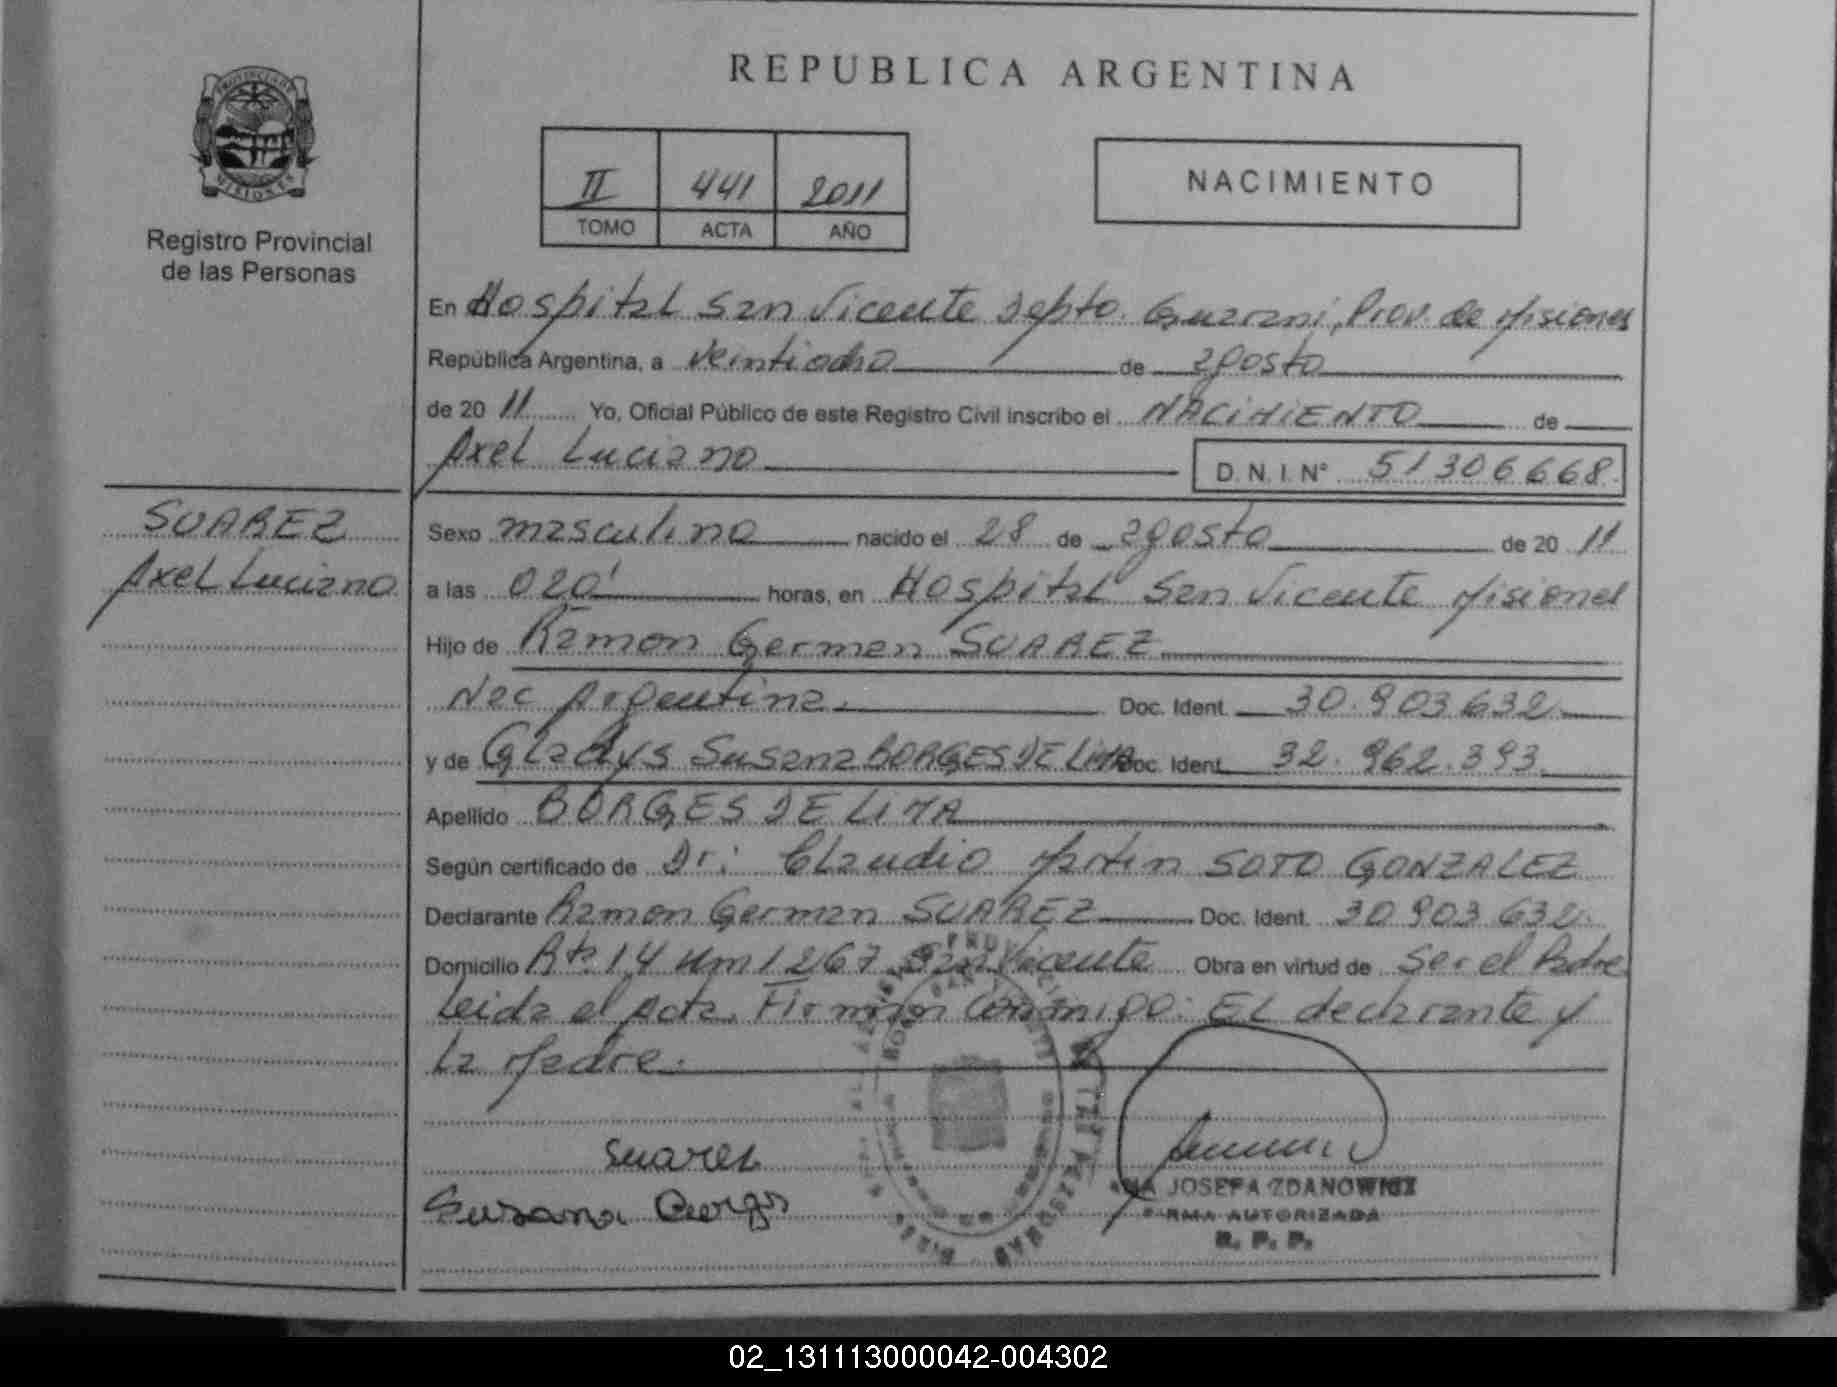 REPUBLICA ARGENTINA
PROVINCIA DE
MISIONES
Registro Provincial
de las Personas
II 441 2011
TOMO ACTA AÑO
NACIMIENTO
En Hospital San Vicente Depto. Guarani, Prov. de Misiones
República Argentina, a veintiocho de agosto
de 20 11 Yo, Oficial Público de este Registro Civil inscribo el NACIMIENTO de
Axel Luciano D. N. I. N° 51306668
SUAREZ
Axel Luciano
Sexo masculino nacido el 28 de agosto de 20 11
a las 020' horas, en Hospital San Vicente Misiones
Hijo de Ramon German SUAREZ
Nac Argentina. Doc. Ident. 30.903.632
y de Gladys Susana BORGES DE LIMA Doc. Ident. 32.962.393
Apellido BORGES DE LIMA
Según certificado de Dr: Claudio Martin SOTO GONZALEZ
Declarante Ramon German SUAREZ Doc. Ident. 30 903 632
Domicilio Rta. 14 Km 1267 San Vicente Obra en virtud de Ser el Padre
Leida el Acta. Firman Conmigo: El declarante y
La Madre.
Suarez
Susana Borges
JOSEFA ZDANOWICZ
FIRMA AUTORIZADA
R. P. P.
02_131113000042-004302